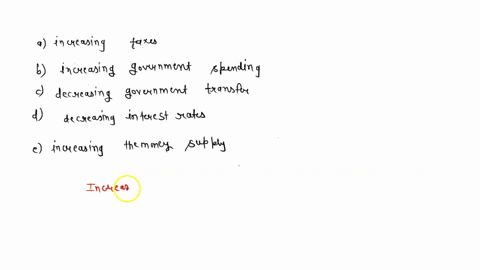 a) increasing taxes
b) increasing government spending
c) decreasing government transfer
d) decreasing interest rates
e) increasing the money supply
Increas